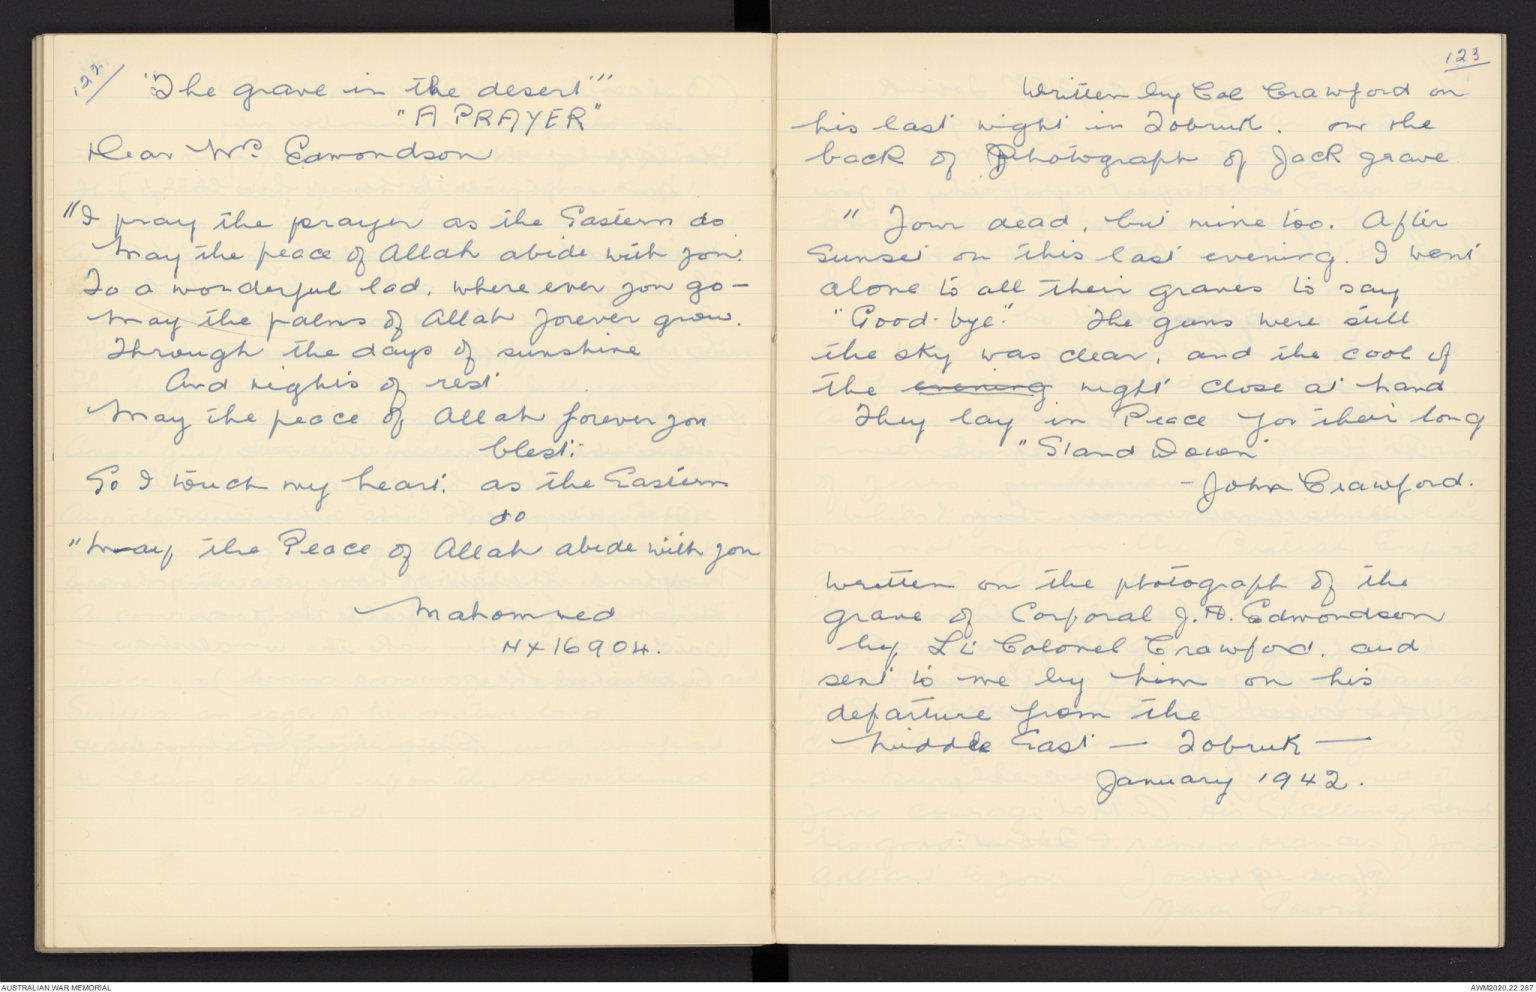 122/
"The grave in the desert"
"A PRAYER"
Dear Mrs. Edmondson
"I pray the prayer as the Eastern do
May the peace of Allah abide with you.
To a wonderful lad, where ever you go –
May the palms of Allah forever grow.
Through the days of sunshine
And nights of rest
May the peace of Allah forever you
blest.
So I touch my heart. as the Eastern
do
"May the Peace of Allah abide with you
Mahommed
NX16904.
123
Written by Col Crawford on
his last night in Tobruk. on the
back of Photograph of Jack grave
" Your dead, but mine too. After
Sunset on this last evening. I went
alone to all their graves to say
"Good-bye." The guns were still
the sky was clear, and the cool of
the evening night close at hand
They lay in Peace for their long
"Stand Down"
- John Crawford.
Written on the photograph of the
grave of Corporal J.H. Edmondson
by Lt Colonel Crawford. and
sent to me by him on his
departure from the
Middle East — Tobruk —
January 1942.
AUSTRALIAN WAR MEMORIAL
AWM2020.22.287